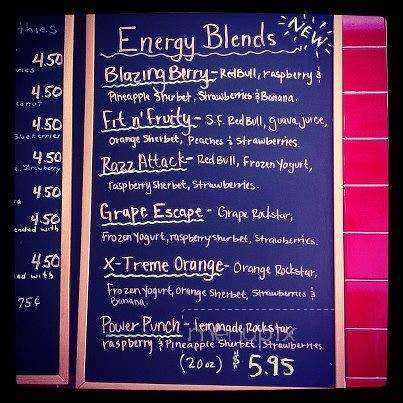 thies
Energy Blends
NEW
4.50
Blazing Berry - Red Bull, raspberry &
Pineapple Sherbet, Strawberries & Banana.
4.50
Fit n' Fruity - S.F. Red Bull, guava juice,
Orange Sherbet, Peaches & Strawberries.
4.50
Blueberries
4.50
Strawberry
Razz Attack - Red Bull, Frozen Yogurt,
raspberry Sherbet, Strawberries.
4.50
Grape Escape - Grape Rockstar,
Frozen Yogurt, raspberry Sherbet, Strawberries.
4.50
ended with
X-Treme Orange - Orange Rockstar,
Frozen Yogurt, Orange Sherbet, Strawberries &
Banana.
4.50
ed with
75¢
Power Punch - Lemonade Rockstar
raspberry & Pineapple Sherbet, Strawberries
menupix
(20oz) $5.95